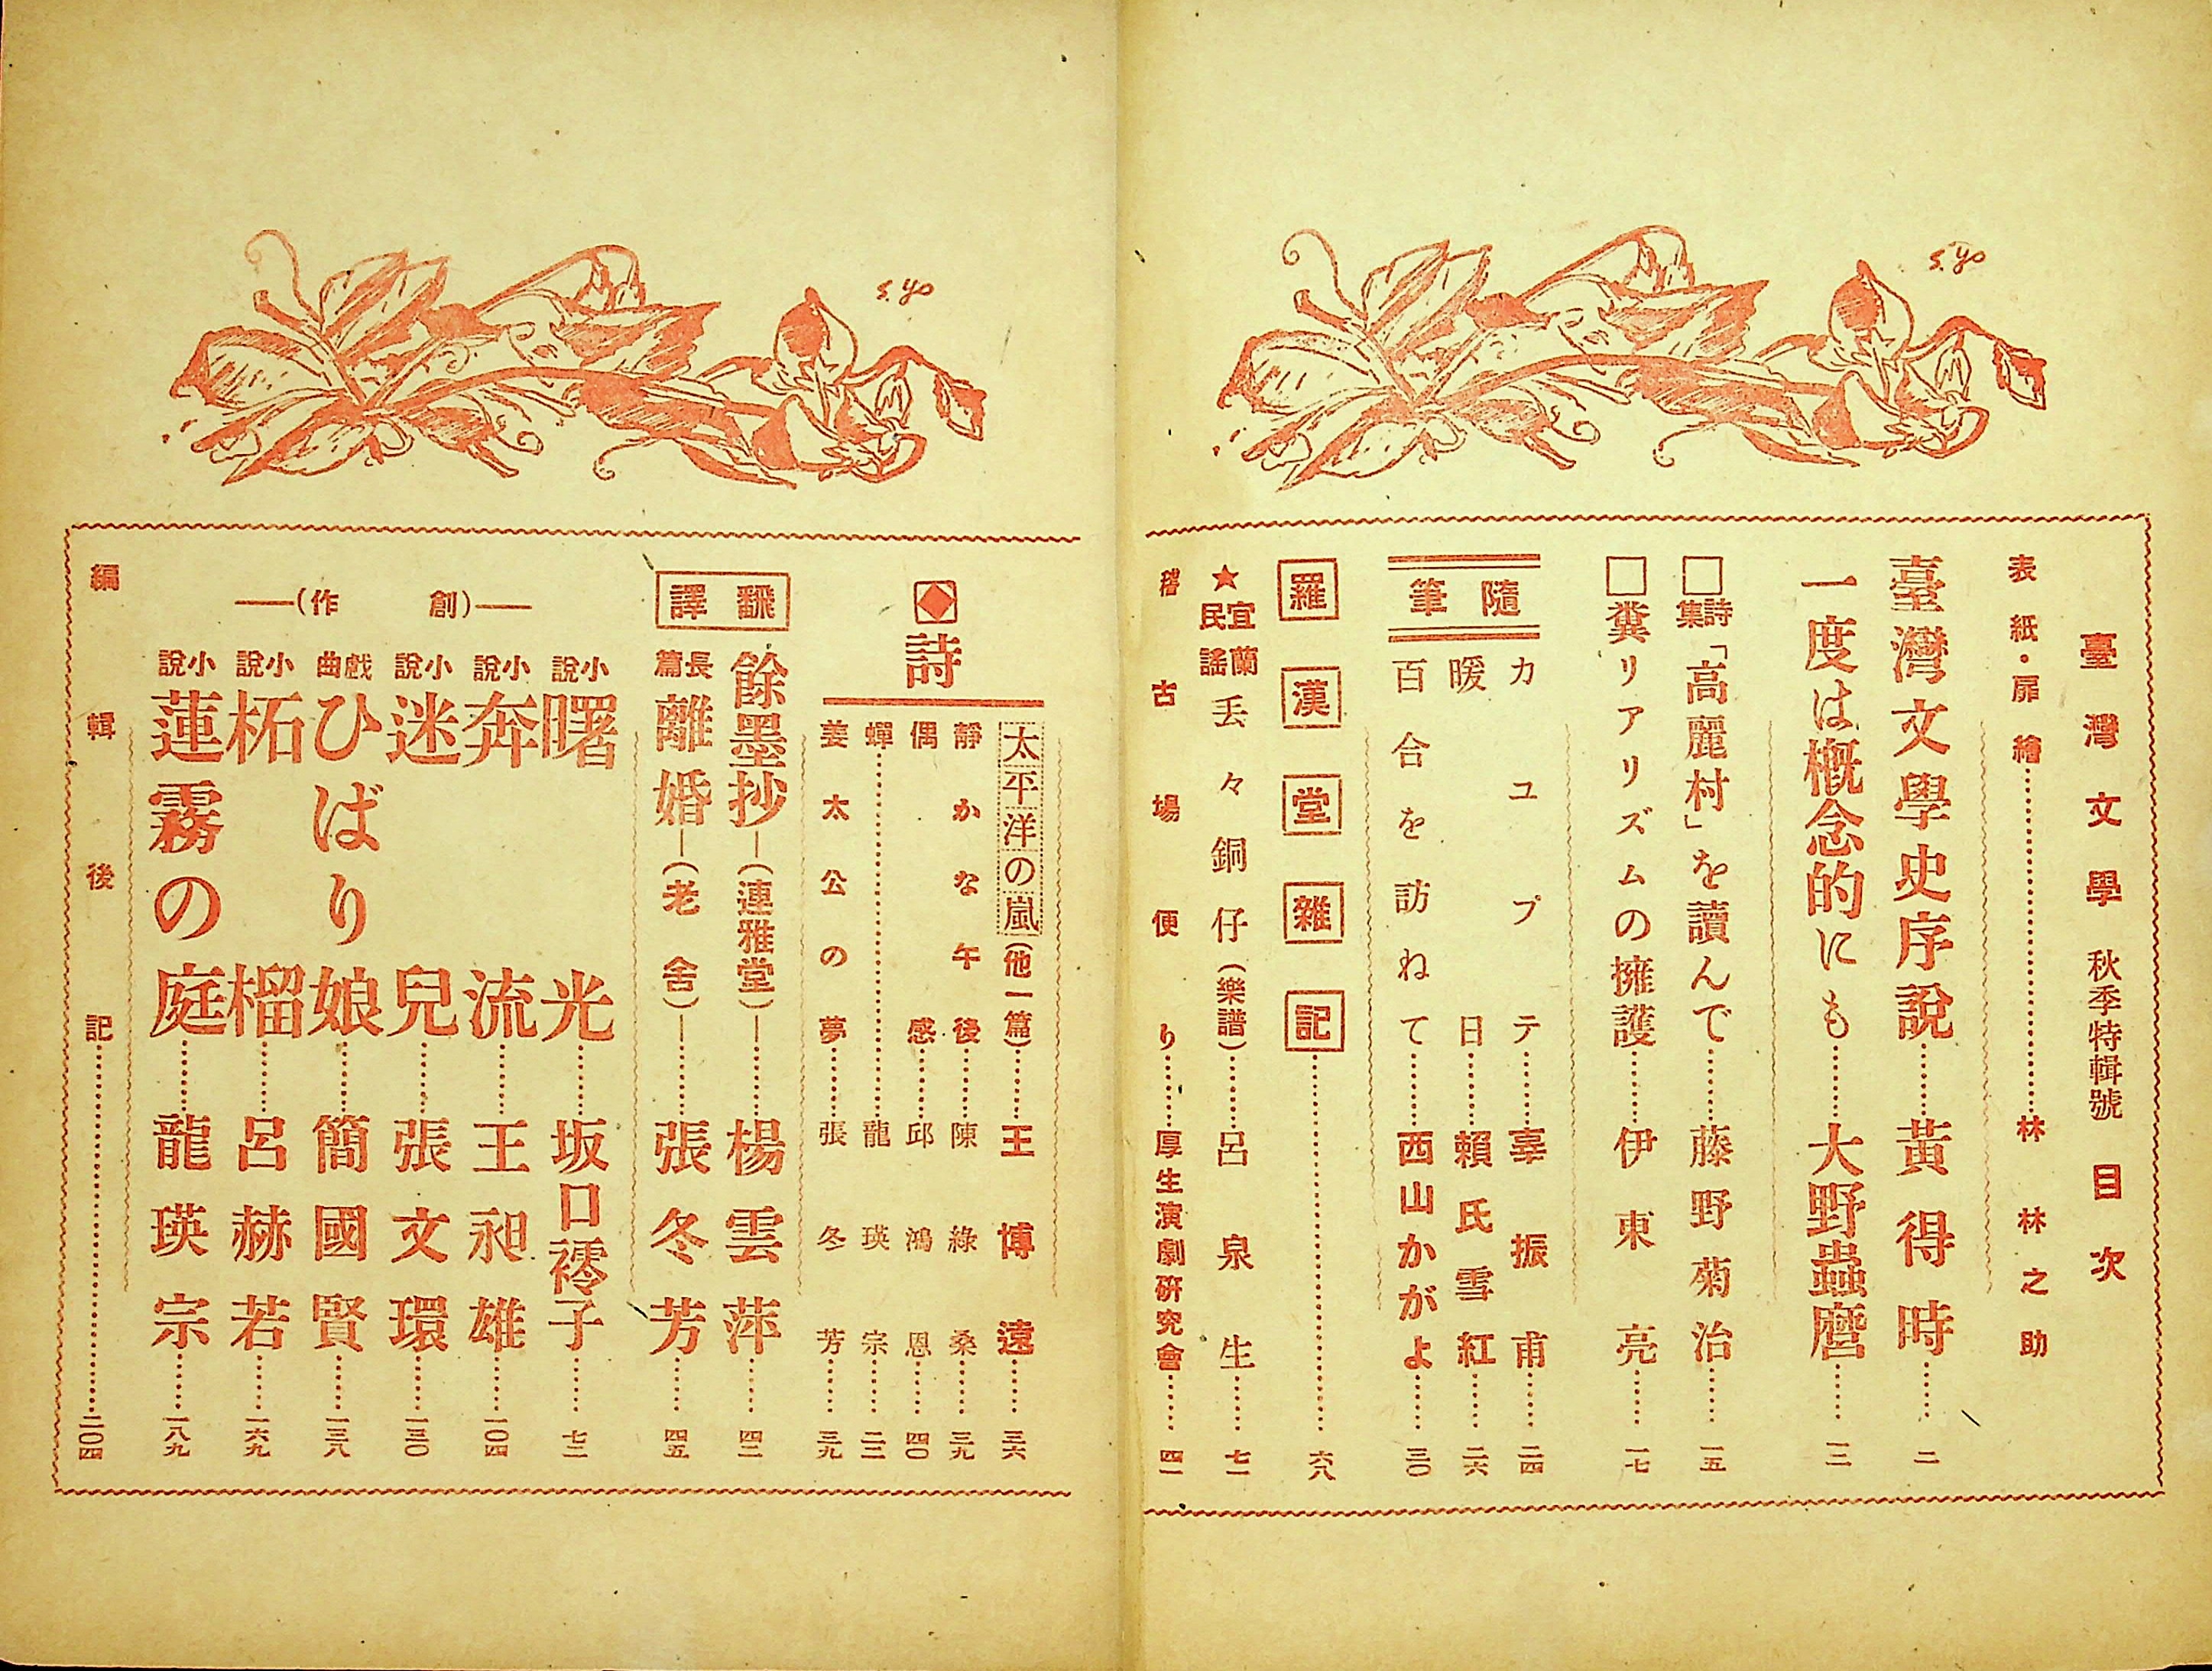 臺灣文學 秋季特輯號 目次
表紙・扉繪……林林之助
臺灣文學史序說……黃得時……二
一度は概念的にも……大野蟲麿……一二
□詩集「高麗村」を讀んで……藤野菊治……一五
□糞リアリズムの擁護……伊東亮……一七
隨筆
カユプテ……辜振甫……二四
暖日……賴氏雪紅……二六
百合を訪ねて……西山かがよ……三〇
羅漢堂雜記……六八
★宜蘭民謠 丟々銅仔(樂譜)……呂泉生……七一
稽古場便り……厚生演劇硏究會……四一
◆詩
太平洋の嵐(他一篇)……王博遠……三六
靜かな午後……陳綠桑……三九
偶感……邱鴻恩……四〇
蟬……龍瑛宗……二三
姜太公の夢……張冬芳……三九
翻譯
餘墨抄―(連雅堂)―……楊雲萍……四二
長篇 離婚―(老舍)―……張冬芳……四五
―(創作)―
小說 曙光……坂口䙥子……七二
小說 奔流……王昶雄……一〇四
小說 迷兒……張文環……一三〇
戲曲 ひばり娘……簡國賢……一三八
小說 柘榴……呂赫若……一六九
小說 蓮霧の庭……龍瑛宗……一八九
編輯後記……二〇四
s.yo
s.yo